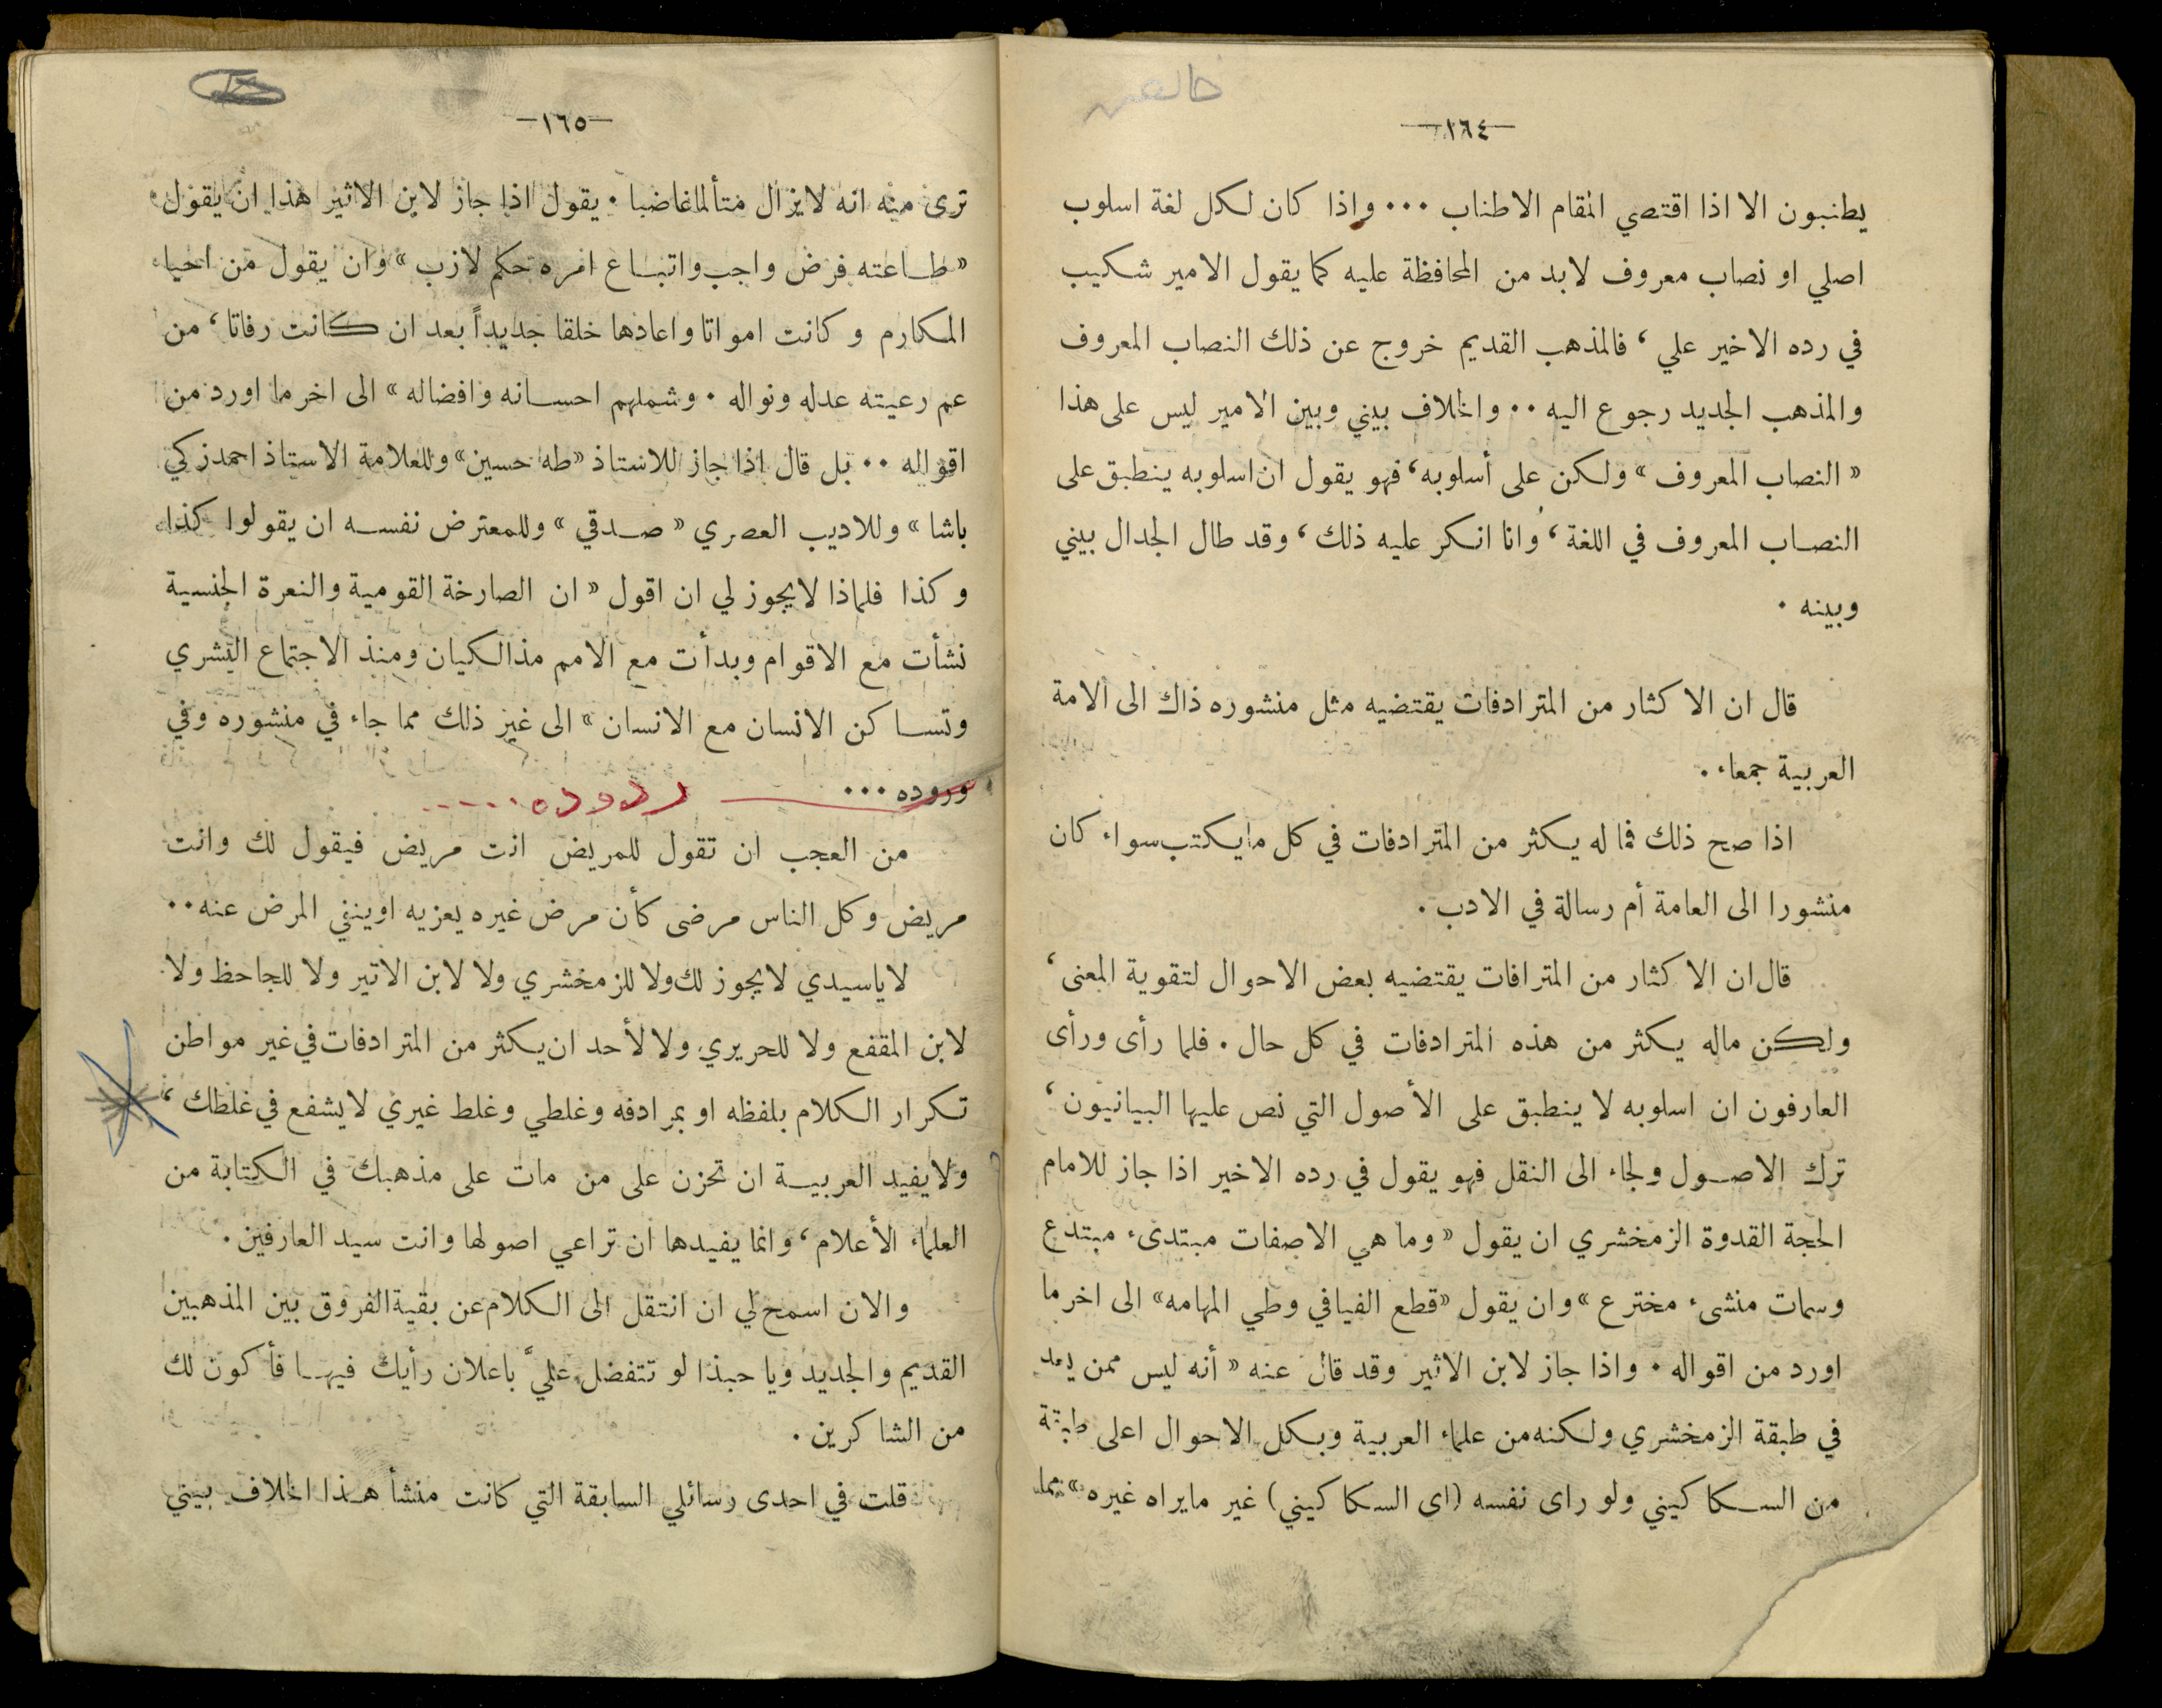 —١٦٤—
يطنبون الا اذا اقتصي المقام الاطناب ٠٠٠ واذا كان لكل لغة اسلوب
اصلي او نصاب معروف لابد من المحافظة عليه كما يقول الامير شكيب
في رده الاخير علي ، فالمذهب القديم خروج عن ذلك النصاب المعروف
والمذهب الجديد رجوع اليه ٠٠ والخلاف بيني وبين الامير ليس على هذا
« النصاب المعروف » ولكن على أسلوبه ، فهو يقول ان اسلوبه ينطبق على
النصاب المعروف في اللغة ، وانا انكر عليه ذلك ، وقد طال الجدال بيني
وبينه .
قال ان الاكثار من المترادفات يقتضيه مثل منشوره ذاك الى الامة
العربية جمعاء .
اذا صح ذلك فما له يكثر من المترادفات في كل مايكتب سواء كان
منشورا الى العامة أم رسالة في الادب .
قال ان الاكثار من المترافات يقتضيه بعض الاحوال لتقوية المعنى ،
ولكن ماله يكثر من هذه المترادفات في كل حال . فلما رأى ورأى
العارفون ان اسلوبه لا ينطبق على الأصول التي نص عليها البيانيون ،
ترك الاصول ولجاء الى النقل فهو يقول في رده الاخير اذا جاز للامام
الحجة القدوة الزمخشري ان يقول « وما هي الاصفات مبتدىء مبتدع
وسمات منشىء مخترع » وان يقول «قطع الفيافي وطي المهامه» الى اخر ما
اورد من اقواله . واذا جاز لابن الاثير وقد قال عنه « أنه ليس ممن يعد
في طبقة الزمخشري ولكنه من علماء العربية وبكل الاحوال اعلى طبقة
من السكاكيني ولو راى نفسه (اى السكاكيني) غير مايراه غيره» مما
—١٦٥—
ترى منه انه لايزال متألما غاضبا . يقول اذا جاز لابن الاثير هذا ان يقول
« طاعته فرض واجب واتباع امره حكم لازب » وان يقول من احيا
المكارم وكانت امواتا واعادها خلقا جديداً بعد ان كانت رفاتا ، من
عم رعيته عدله ونواله . وشملهم احسانه وافضاله » الى اخر ما اورد من
اقواله ٠٠ بل قال اذا جاز للاستاذ «طه حسين» وللعلامة الاستاذ احمدزكي
باشا » وللاديب العصري « صدقي » وللمعترض نفسه ان يقولوا كذا
وكذا فلماذا لايجوز لي ان اقول « ان الصارخة القومية والنعرة الجنسية
نشأت مع الاقوام وبدأت مع الامم مذالكيان ومنذ الاجتماع البشري
وتساكن الانسان مع الانسان » الى غير ذلك مما جاء في منشوره وفي
وروده ٠٠٠ ردوده .....
من العجب ان تقول للمريض انت مريض فيقول لك وانت
مريض وكل الناس مرضى كأن مرض غيره يعزيه اوينفي المرض عنه ٠٠
لاياسيدي لايجوز لك ولا للزمخشري ولا لابن الاتير ولا للجاحظ ولا
لابن المقفع ولا للحريري ولا لأحد ان يكثر من المترادفات في غير مواطن
تكرار الكلام بلفظه او بمرادفه وغلطي وغلط غيري لايشفع في غلطك ،
ولايفيد العربية ان تحزن على من مات على مذهبك في الكتابة من
العلماء الأعلام ، وانما يفيدها ان تراعي اصولها وانت سيد العارفين .
والان اسمح لي ان انتقل الى الكلام عن بقية الفروق بين المذهبين
القديم والجديد ويا حبذا لو تتفضل عليَّ باعلان رأيك فيها فأكون لك
من الشاكرين .
قلت في احدى رسائلي السابقة التي كانت منشأ هذا الخلاف بيني